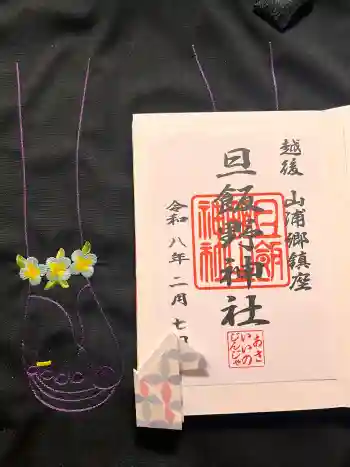 越後
山浦郷鎮座
旦飯野神社
令和八年二月七
あさ
いいの
じんじゃ